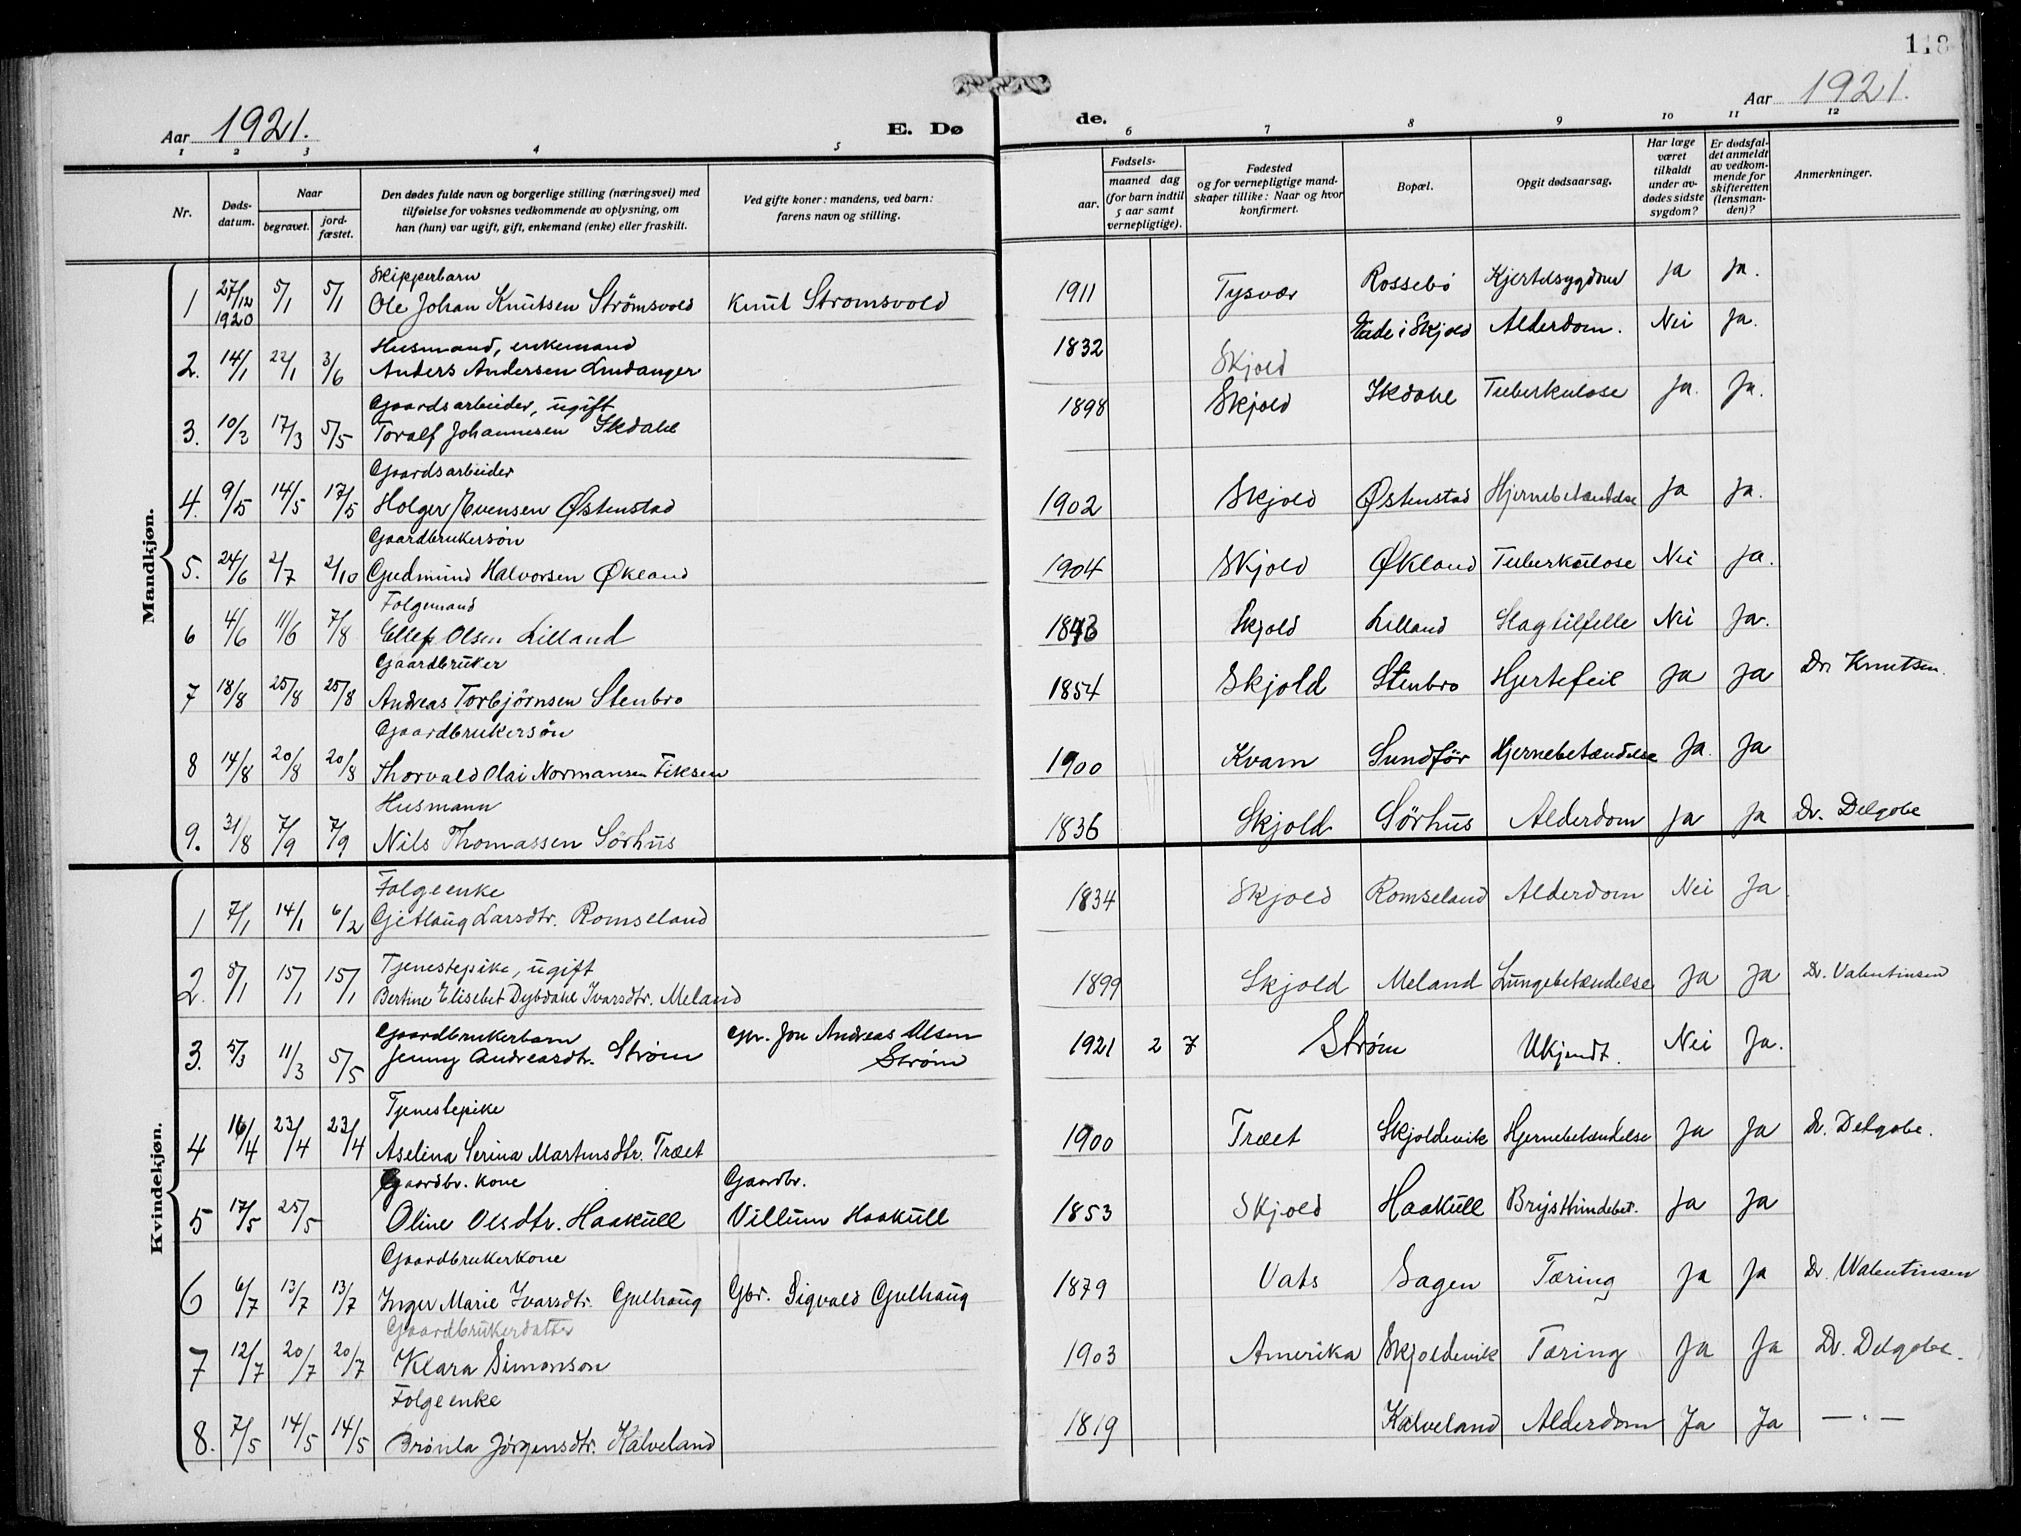 118
Aar 1921.
E. Dø
de.
Aar 1921.
1 2 3 4 5 6 7 8 9 10 11 12
Nr.
Døds-
datum.
Naar
begravet.
jord-
fæstet.
Den dødes fulde navn og borgerlige stilling (næringsvei) med
tilføielse for voksnes vedkommende av oplysning, om
han (hun) var ugift, gift, enkemand (enke) eller fraskilt.
Ved gifte koner: mandens, ved barn:
farens navn og stilling.
Fødsels-
aar.
maaned dag
(for barn indtil
5 aar samt
vernepligtige).
Fødested
og for vernepligtige mand-
skaper tillike: Naar og hvor
konfirmert.
Bopæl.
Opgit dødsaarsag.
Har læge
været
tilkaldt
under av-
dødes sidste
sygdom?
Er dødsfal-
det anmeldt
av vedkom-
mende for
skifteretten
(lensman-
den)?
Anmerkninger.
Mandkjøn.
Skipperbarn
1 27/12 1920 5/1 5/1 Ole Johan Knutsen Strømsvold Knut Stromsvold 1911 Tysvær Rossebø Kjertelsygdom ja ja.
Husmand, enkemand
2. 14/1 22/1 3/6 Anders Andersen Lindanger 1832 Skjold Eide i Skjold Alderdom. Nei ja.
Gaardsarbeider, ugift
3. 10/3 17/3 5/5 Toralf Johannesen Skdahl 1898 Skjold Skdahl Tuberkulose ja. ja.
Gaardsarbeider
4. 9/5 14/5 17/5 Holger Evensen Østenstad 1902 Skjold Østenstad Hjernebetændelse ja ja.
Gaardbrukersøn
5. 24/6 2/7 2/10 Gudmund Halvorsen Økland 1904 Skjold Økland Tuberkulose Nei ja.
Folgemand
6 4/6 11/6 7/8 Ellef Olsen Lilland 1843 Skjold Lilland Slagtilfelle Nei ja.
Gaardbruker
7 18/8 25/8 25/8 Andreas Torbjørnsen Stenbro 1854 Skjold Stenbro Hjertefeil ja ja Dr. Knutsen.
Gaardbrukersøn
8 14/8 20/8 20/8 Thorvald Olai Normansen Fiksen 1900 Kvam Sundför Hjernebetændelse ja. ja
Husmann
9. 31/8 7/9 7/9 Nils Thomassen Sörhus 1836 Skjold Sörhus Alderdom ja ja Dr. Delgobe
Kvindekjøn.
Folgeenke
1 7/1 14/1 6/2 Gjetlaug Larsdtr. Romseland 1834 Skjold Romseland Alderdom Nei ja
Tjenestepike, ugift
2. 8/1 15/1 15/1 Bertine Elisebet Dybdahl Ivarsdtr. Meland 1899 Skjold Meland Lungebetændelse ja ja Dr. Valentinsen
Gaardbrukerbarn
3. 5/3 11/3 5/5 Jenny Andreasdtr. Strøm Gbr. Jon Andreas Olsen Strøm 1921 2 7 Strøm Ukjendt. Nei ja.
Tjenestepike
4 16/4 23/4 23/4 Aselina Serina Martinsdtr. Træet 1900 Træet Skjoldevik Hjernebetændelse ja ja Dr. Delgobe.
Gaardbr. kone Gaardbr.
5 17/5 25/5 Oline Olsdtr. Haakull Villum Haakull 1853 Skjold Haakull Brysthindebet. ja ja
Gaardbrukerkone
6 6/7 13/7 13/7 Inger Marie Ivarsdtr. Gulhaug Gbr. Sigvald Gulhaug 1879 Vats Sagen Tæring ja ja Dr. Walentinsen
Gaardbrukerdatter
7 12/7 20/7 20/7 Klara Simonson 1903 Amerika Skjoldevik Tæring ja ja Dr. Delgobe.
Folgeenke
8. 7/5 14/5 14/5 Brønla Jørgensdtr. Kalveland 1819 Kalveland Alderdom Ja Ja — . —